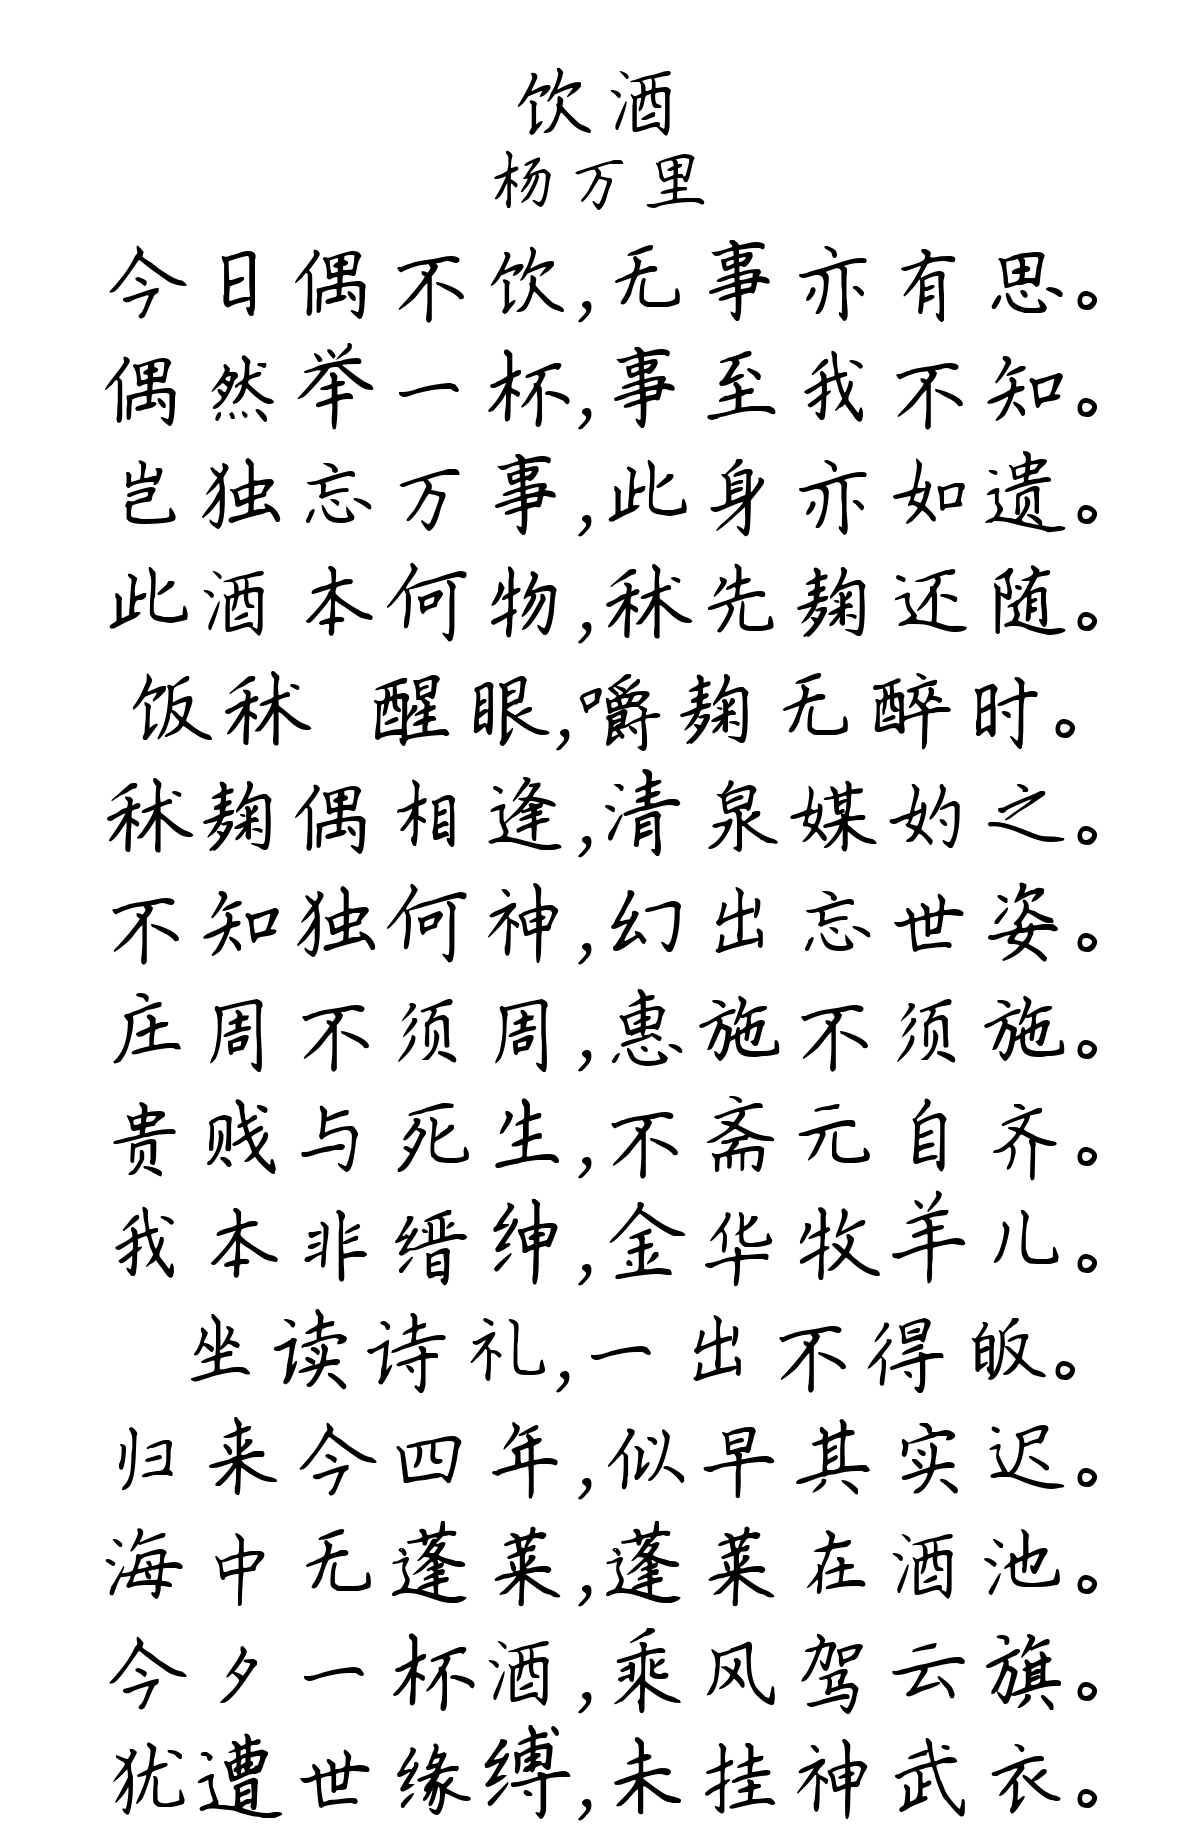 饮酒
杨万里
今日偶不饮,无事亦有思。
偶然举一杯,事至我不知。
岂独忘万事,此身亦如遗。
此酒本何物,秫先麹还随。
饭秫 醒眼,嚼麹无醉时。
秫麹偶相逢,清泉媒妁之。
不知独何神,幻出忘世姿。
庄周不须周,惠施不须施。
贵贱与死生,不斋元自齐。
我本非缙绅,金华牧羊儿。
坐读诗礼,一出不得皈。
归来今四年,似早其实迟。
海中无蓬莱,蓬莱在酒池。
今夕一杯酒,乘风驾云旗。
犹遭世缘缚,未挂神武衣。